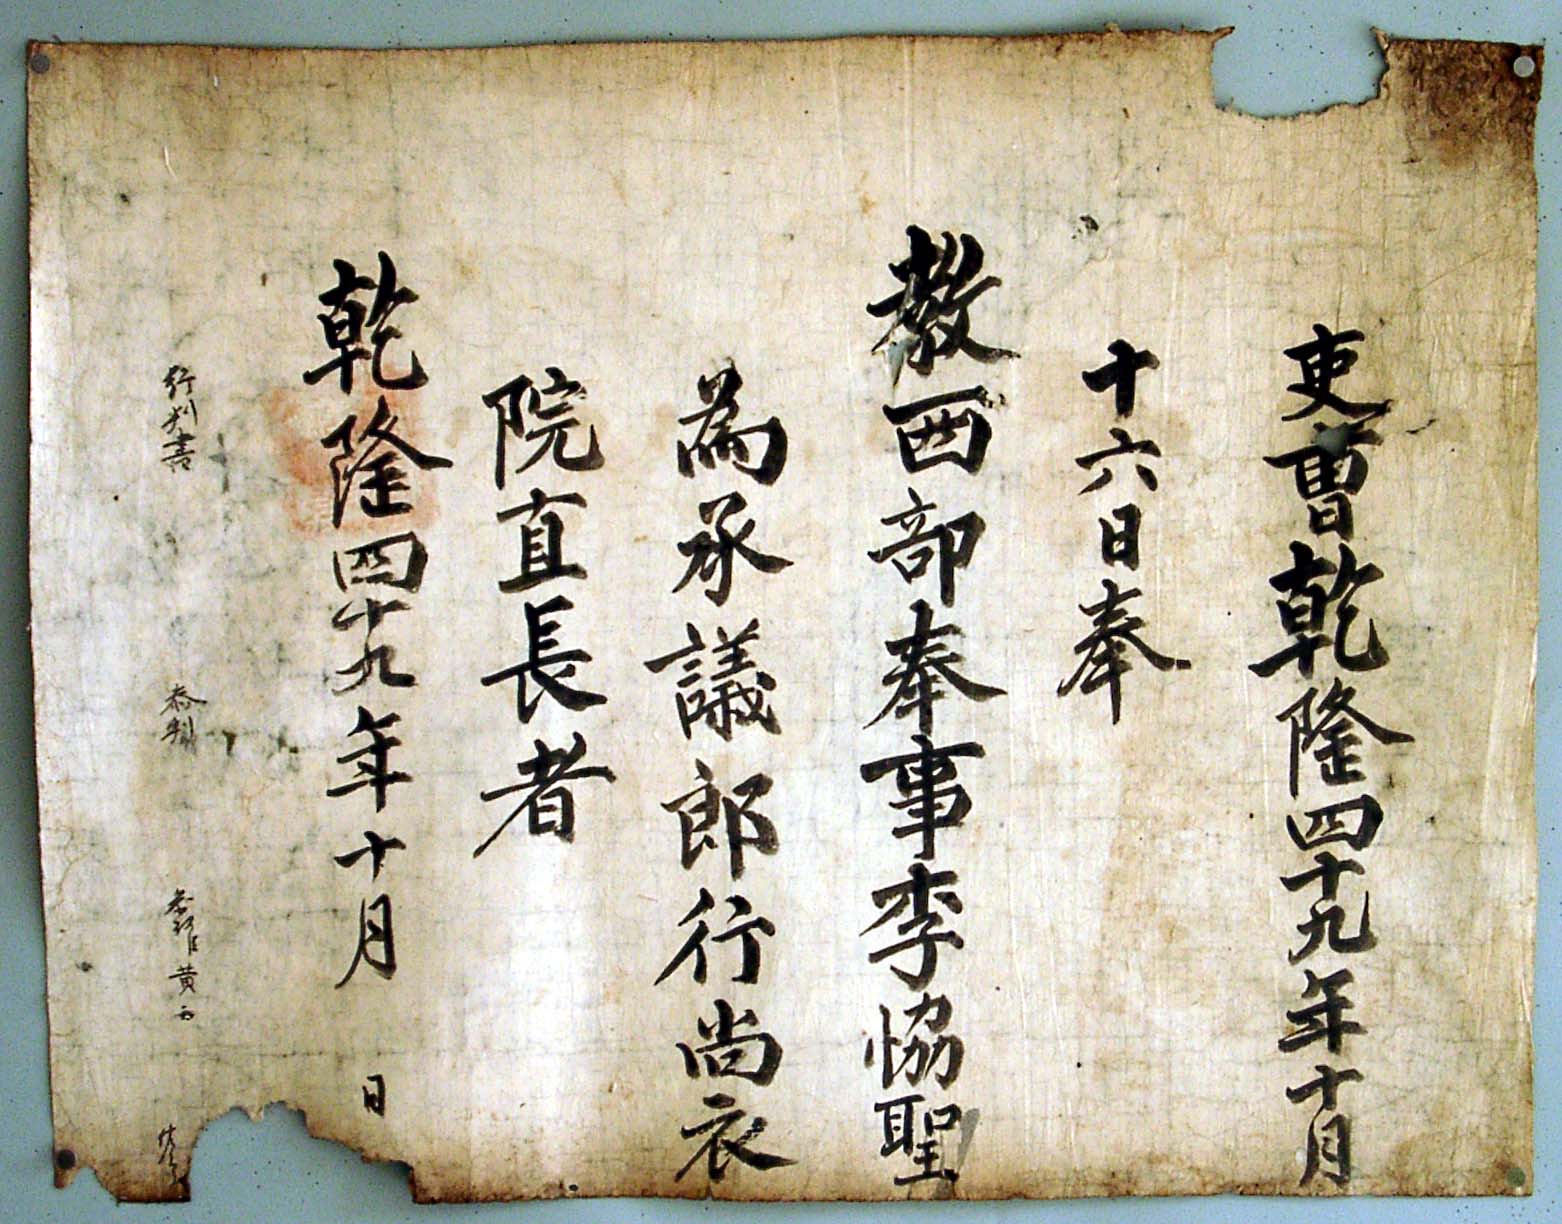 吏曹乾隆四十九年十月
十六日奉
敎西部奉事李恊聖
爲承議郎行尚衣
院直長者
乾隆四十九年十月 日
行判書 參判 黃